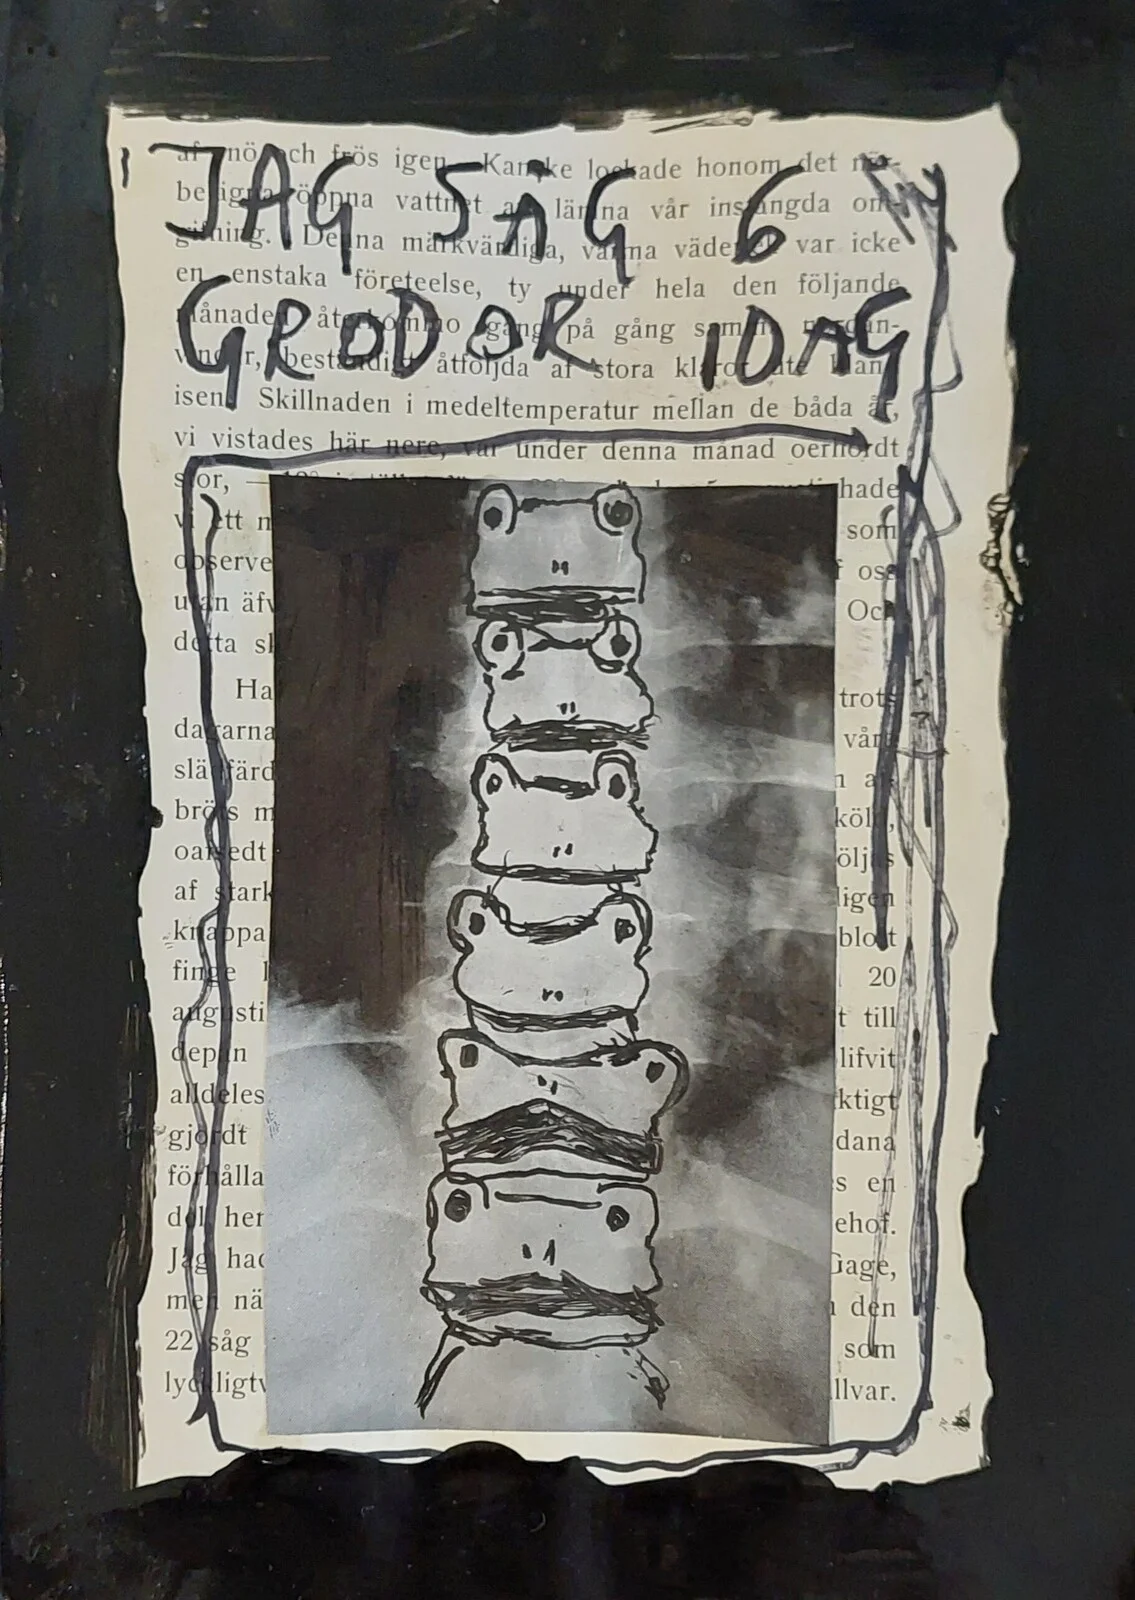 JAG SÅG 6
GRODOR IDAG
af snö och frös igen. Kanske lockade honom det
öppna vattnet att lämna vår instängda om-
gifning. Denna märkvärdiga, varma väderlek var icke
en enstaka företeelse, ty under hela den följande
månaden återkommo gång på gång
beständigt åtföljda af stora klaror ute
isen. Skillnaden i medeltemperatur mellan de båda år,
vi vistades här nere, var under denna månad oerhördt
stor, — hade
vi ett som
observe oss
utan äfv Och
detta sk
Ha trots
dagarna vår
färd
m
af stark ligen
knappa blott
finge 20
augusti t till
lifvit
alldeles ktigt
gjordt dana
förhålla s en
del her ehof.
Jag had Gage,
men nä den
22 såg som
lyckligtv llvar.